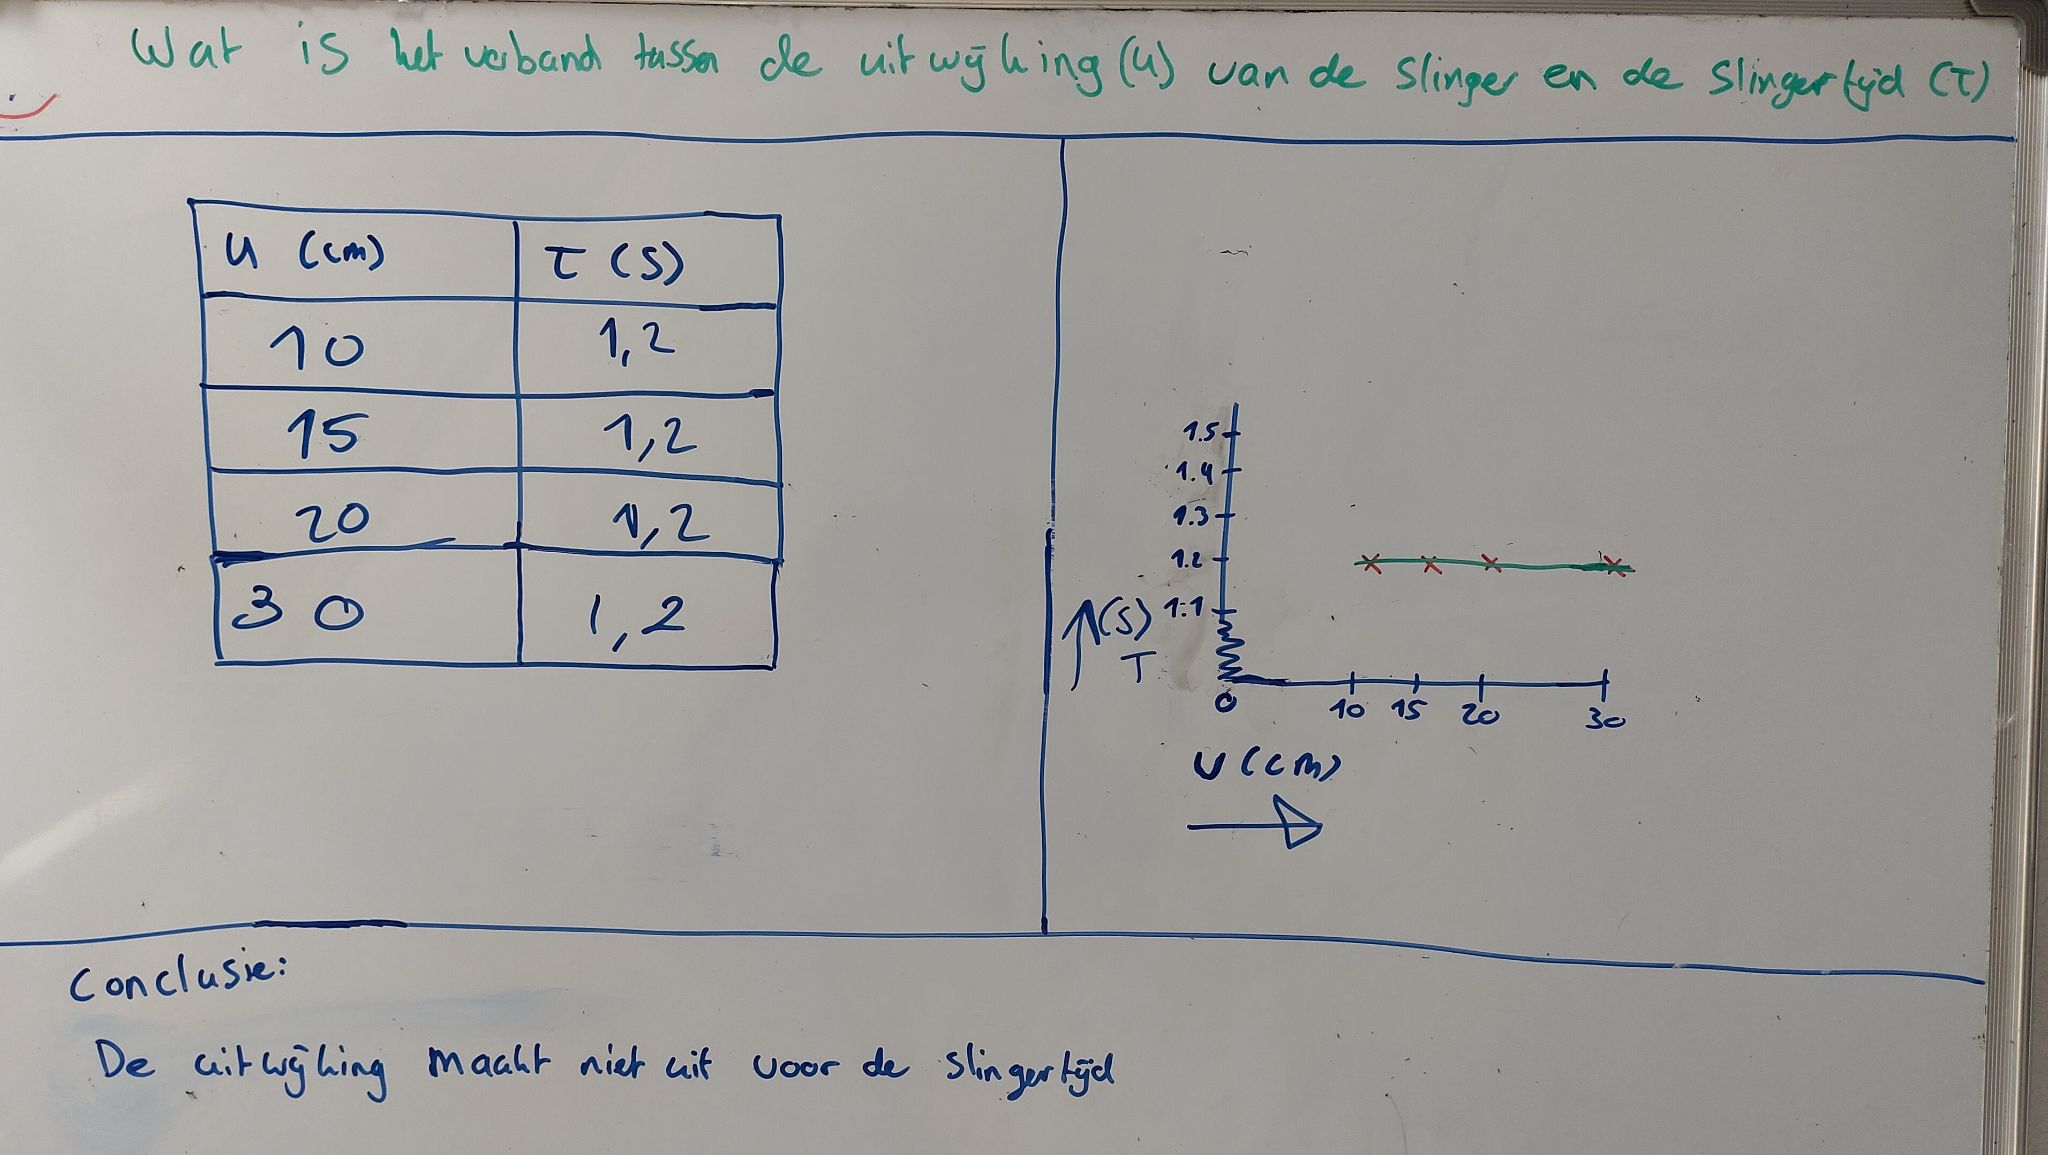 Wat is het verband tussen de uitwijking (u) van de slinger en de slingertijd (T)
u (cm) T (s)
10 1,2
15 1,2
20 1,2
30 1,2
1.5
1.4
1.3
1.2
1.1
(s)
T
0 10 15 20 30
U (cm)
Conclusie:
De uitwijking maakt niet uit voor de slingertijd